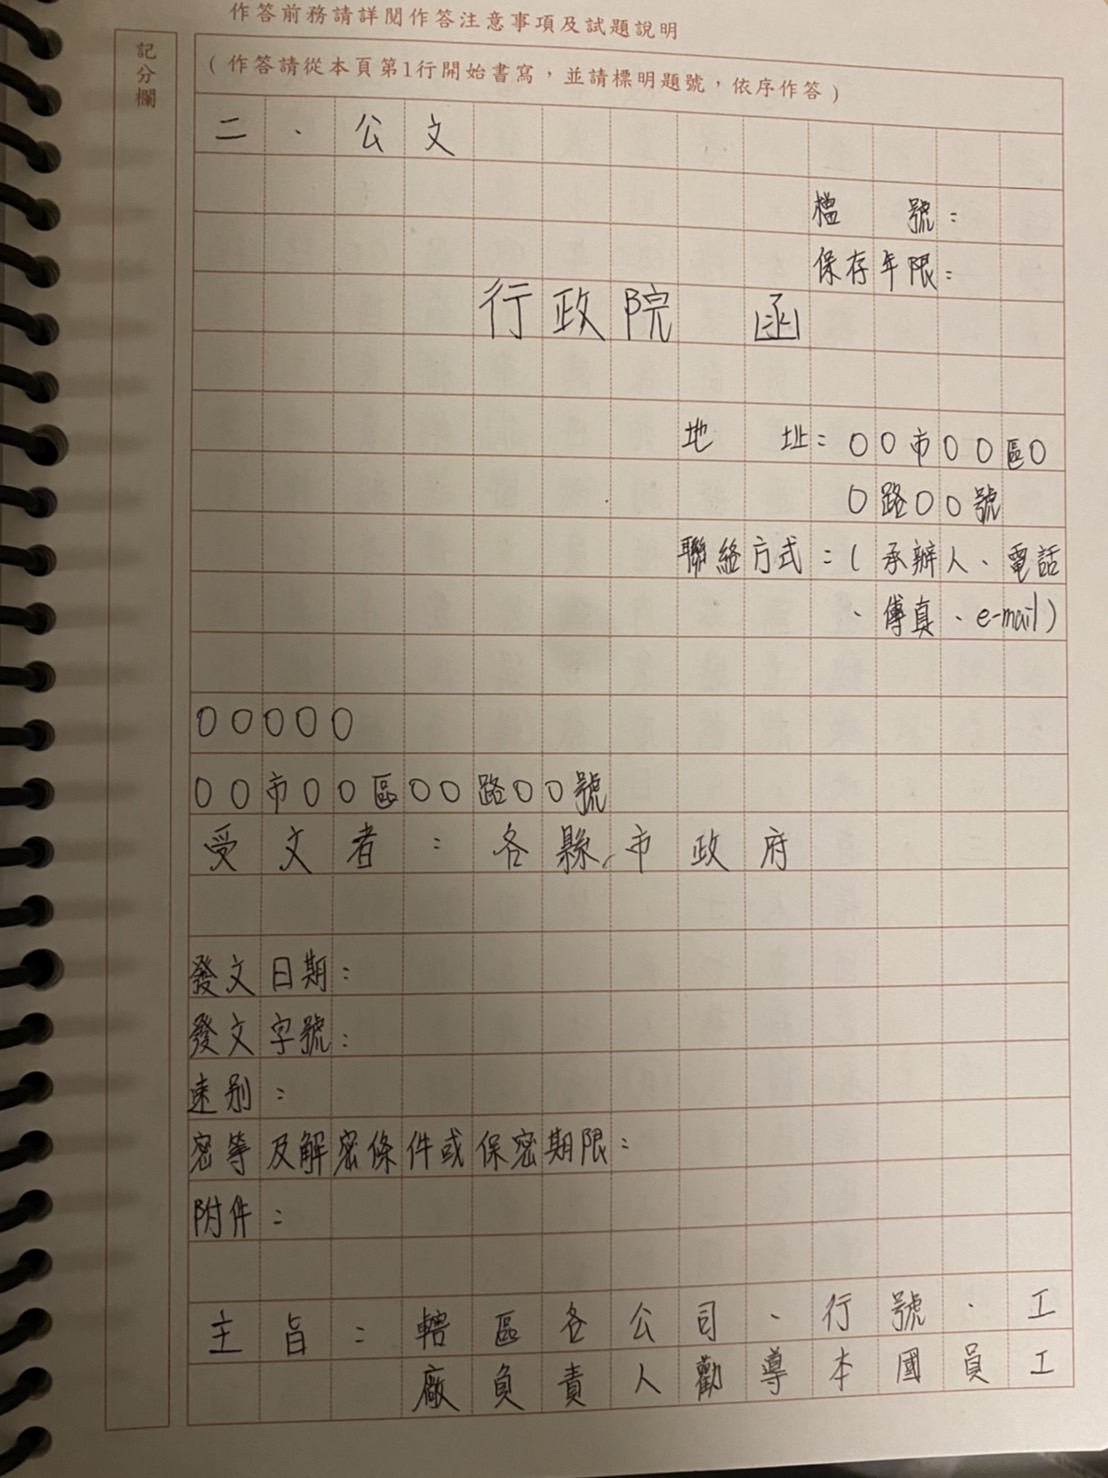 作答前務請詳閱作答注意事項及試題說明
記分欄
(作答請從本頁第1行開始書寫，並請標明題號，依序作答)
二、公文
檔　號：
保存年限：
行政院　函
地　址：○○市○○區○
○路○○號
聯絡方式：(承辦人、電話
、傳真、e-mail)
○○○○○
○○市○○區○○路○○號
受文者：各縣、市政府
發文日期：
發文字號：
速別：
密等及解密條件或保密期限：
附件：
主旨：轄區各公司、行號、工
廠負責人勸導本國員工